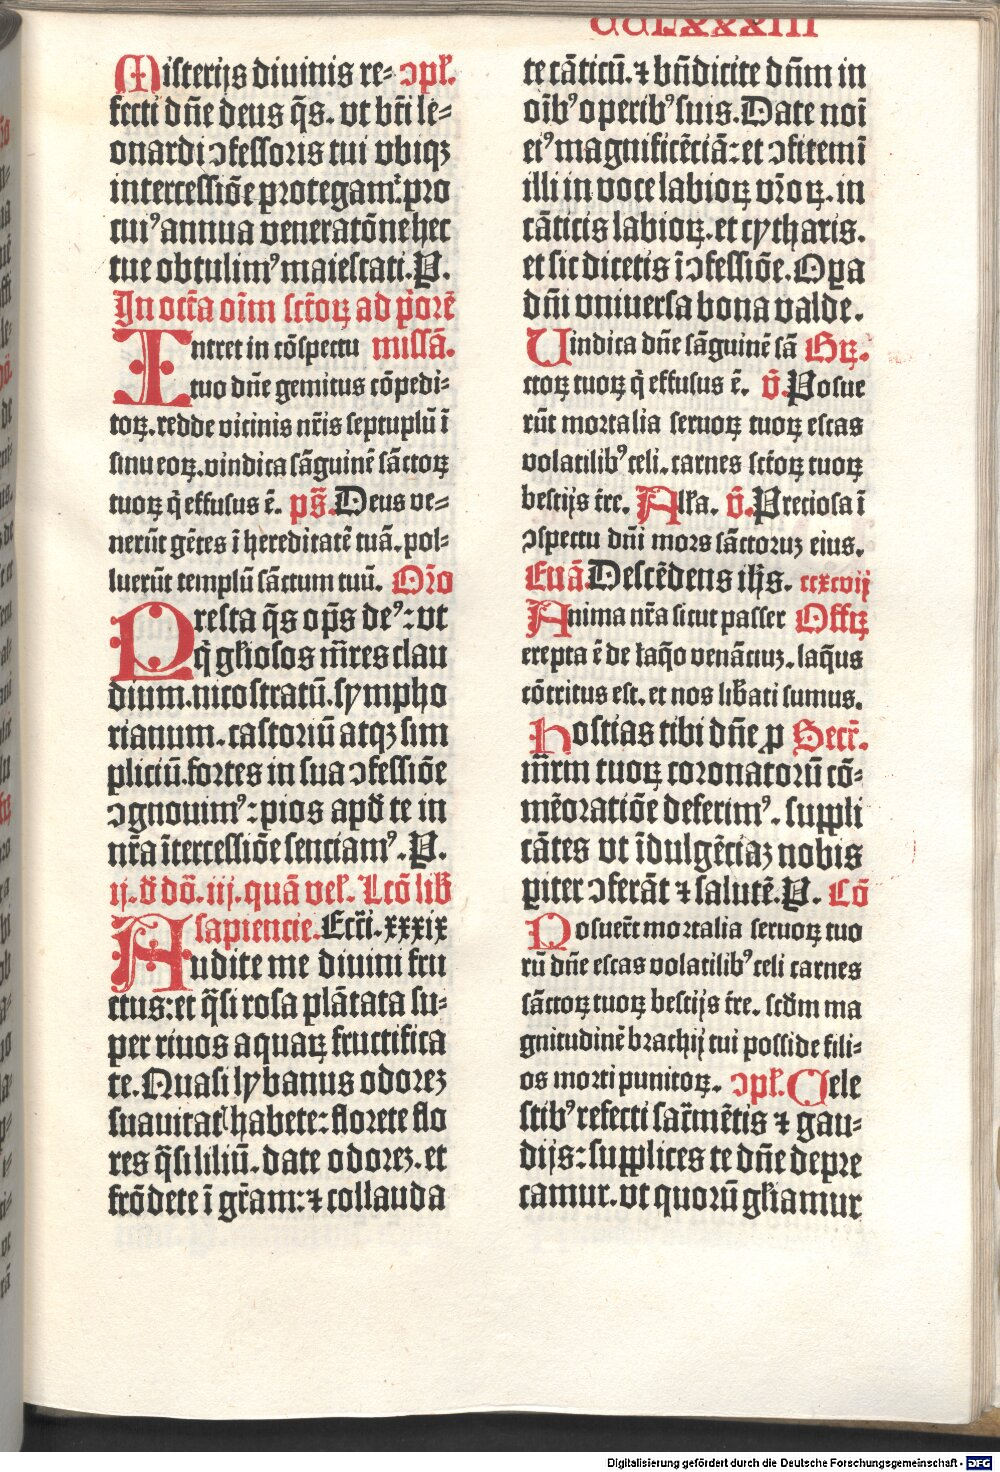 CCLXXXIII
Misterijs diuinis re⸗ ↄpl̕.
fecti dn̄e deus q̄s. vt bt̄i le⸗
onardi ↄfessoris tui vbiqꝫ
intercessiōe protegamᷣ. pro
cuiꝰ annua veneratōne hec
tue obtulimꝰ maiestati. P.
In octa oīm sctōꝝ ad p̄orē
Intret in cōspectu missā.
tuo dn̄e gemitus cōpedi⸗
toꝝ. redde vicinis nr̄is septuplū ī
sinu eoꝝ. vindica sāguinē sāctoꝝ
tuoꝝ q̄ effusus ē. ps̄. Deus ve⸗
nerūt gētes ī hereditatē tuā. pol⸗
luerūt templū sāctum tuū. Oro
Presta q̄s op̄s deꝰ: vt
q̄ gl̕iosos m̄res clau
dium. nicostratū. sympho
rianum. castoriū atqꝫ sim
pliciū. fortes in sua ↄfessiōe
ↄgnouimꝰ: pios apd̕ te in
nr̄a ītercessiōe senciamꝰ. P.
ij. d̕ dō. iij. quā vel̕. Lcō lib̕
sapiencie. Ecc̄i. xxxix
Audite me diuini fru
ctus: et q̄si rosa plātata su⸗
per riuos aquaꝝ fructifica
te. Quasi lybanus odoreꝫ
suauitat̕ habete: florete flo
res q̄si liliū. date odoreꝫ. et
frōdete ī gr̄am: ⁊ collauda
te cāticū. ⁊ bn̄dicite dn̄m in
oīb⁹ operib⁹ suis. Date noī
ei⁹ magnificēciā: et ↄfitemī
illi in voce labioꝝ vr̄oꝝ. in
cāticis labioꝝ. et cytharis.
et sic dicetis ī ↄfessiōe. Opa
dn̄i vniuersa bona valde.
Uindica dn̄e sāguinē sā Gꝝ.
ctoꝝ tuoꝝ q̄ effusus ē. v̄. Posue
rūt mortalia seruoꝝ tuoꝝ escas
volatilib⁹ celi. carnes sctōꝝ tuoꝝ
bestijs t̄re. Al̕la. v̄. Preciosa ī
ↄspectu dn̄i mors sāctoruꝫ eius.
Euā. Descēdens ih̄s. ccxcvij
Anima nr̄a sicut passer Offꝝ
erepta ē de laq̄o venāciuꝫ. laq̄us
cōtritus est. et nos lib̕ati sumus.
Hostias tibi dn̄e ꝓ Secr̄.
m̄rm tuoꝝ coronatorū cō⸗
mēoratiōe deferim⁹. suppli
cātes vt īdulgēciaꝫ nobis
piter ↄferāt ⁊ salutē. P. Cō
Posuer̄t mortalia seruoꝝ tuo
rū dn̄e escas volatilib⁹ celi carnes
sāctoꝝ tuoꝝ bestijs t̄re. scdm̄ ma
gnitudinē brachij tui posside fili⸗
os morti punitoꝝ. ↄpl̕. Cele
stib⁹ refecti sac̄mētis ⁊ gau⸗
dijs: supplices te dn̄e depre
camur. vt quorū gl̕iamur
Digitalisierung gefördert durch die Deutsche Forschungsgemeinschaft - DFG